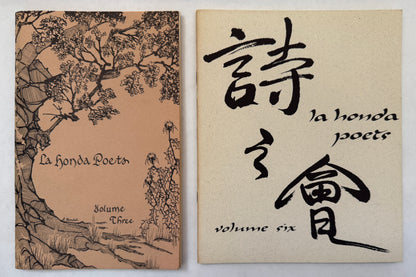 La Honda Poets
Volume
Three
詩之會
la honda
poets
volume six